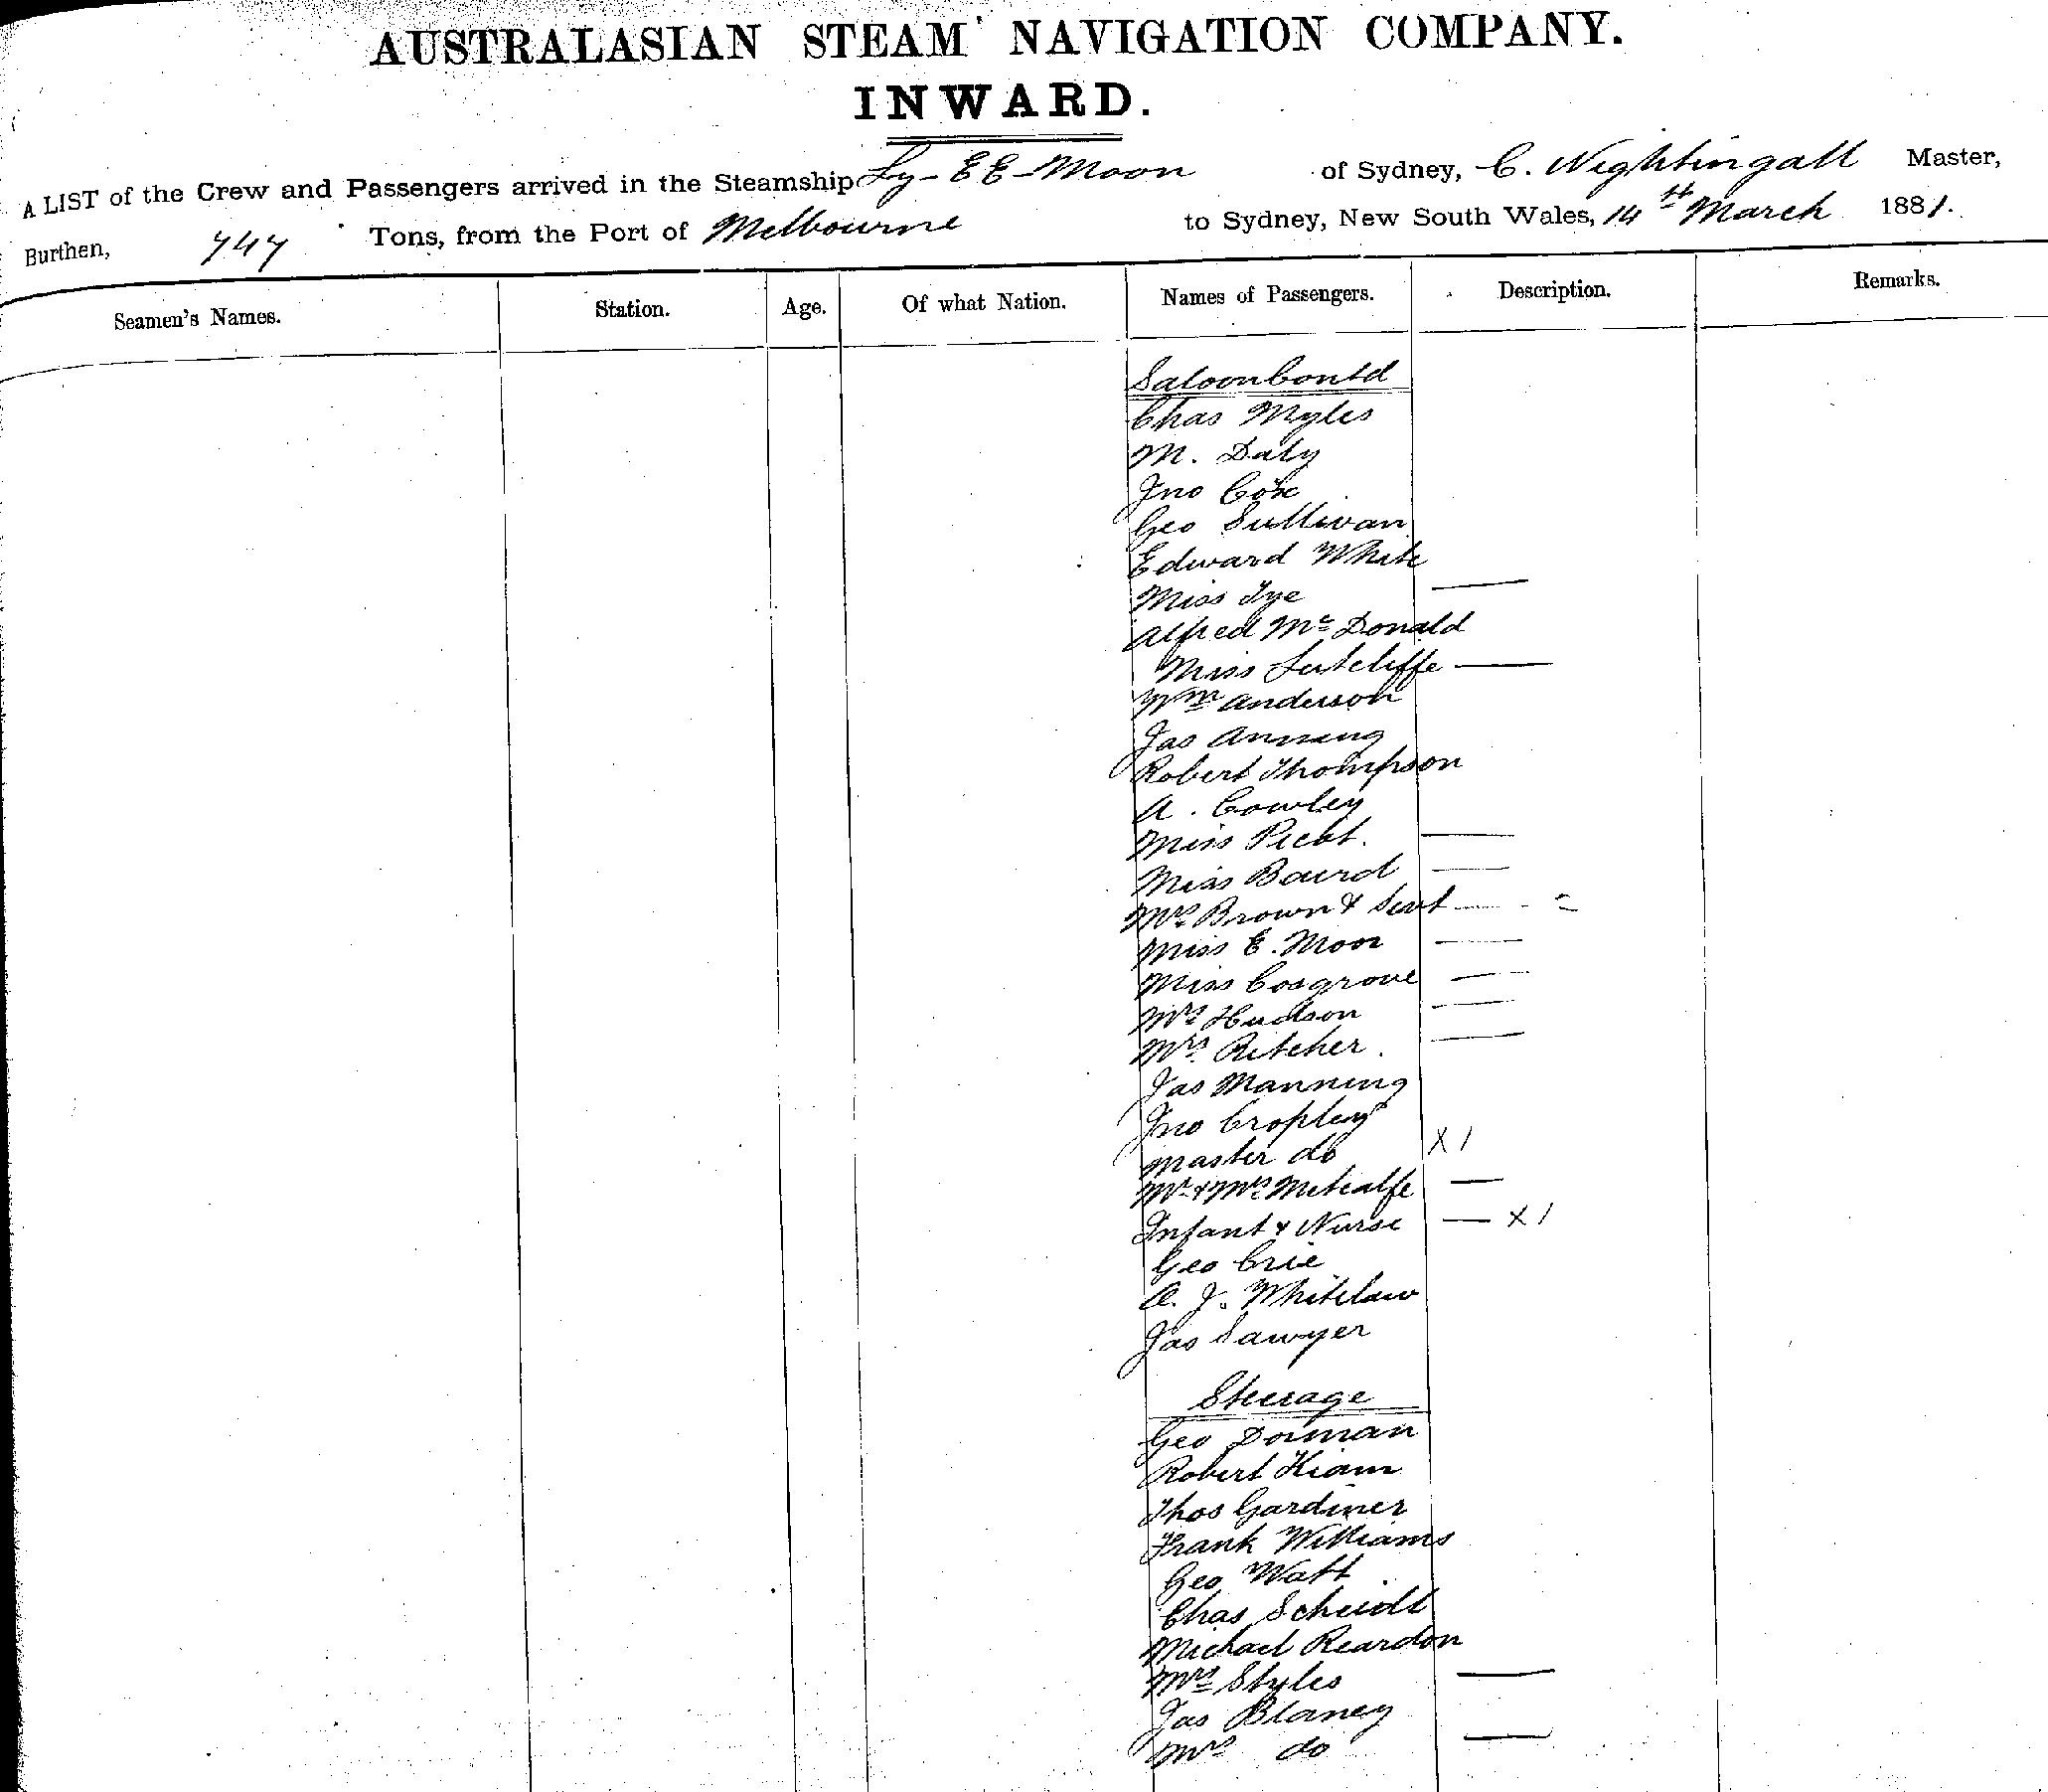 AUSTRALASIAN STEAM NAVIGATION COMPANY.
INWARD.
A LIST of the Crew and Passengers arrived in the Steamship Ly-EE-Moon of Sydney, C. Nightingall Master,
Burthen, 747 Tons, from the Port of Melbourne to Sydney, New South Wales, 14th March 1881.
Seamen's Names. Station. Age. Of what Nation. Names of Passengers. Description. Remarks.
Saloon Contd
Chas Myles
M. Daly
Jno Cox
Geo Sullivan
Edward White
Miss Tye —
Alfred Mc Donald
Miss Sutcliffe —
Wm Anderson
Jas Anning
Robert Thompson
A. Cowley
Miss —
Miss Baird —
Mrs Brown & Servt — =
Miss E. Moor —
Miss Cosgrove —
Mrs Hudson —
Mrs Ritcher. —
Jas Manning
Jno Cropley
Master do X 1
Mr & Mrs Metcalfe —
Infant & Nurse — X 1
Geo Crie
A. J. Whitelaw
Jas Sawyer
Steerage
Geo Dorman
Robert Kiam
Thos Gardiner
Frank Williams
Geo Watt
Chas Scheidt
Michael Reardon
Mrs Styles —
Jas Blaney
Mrs do —